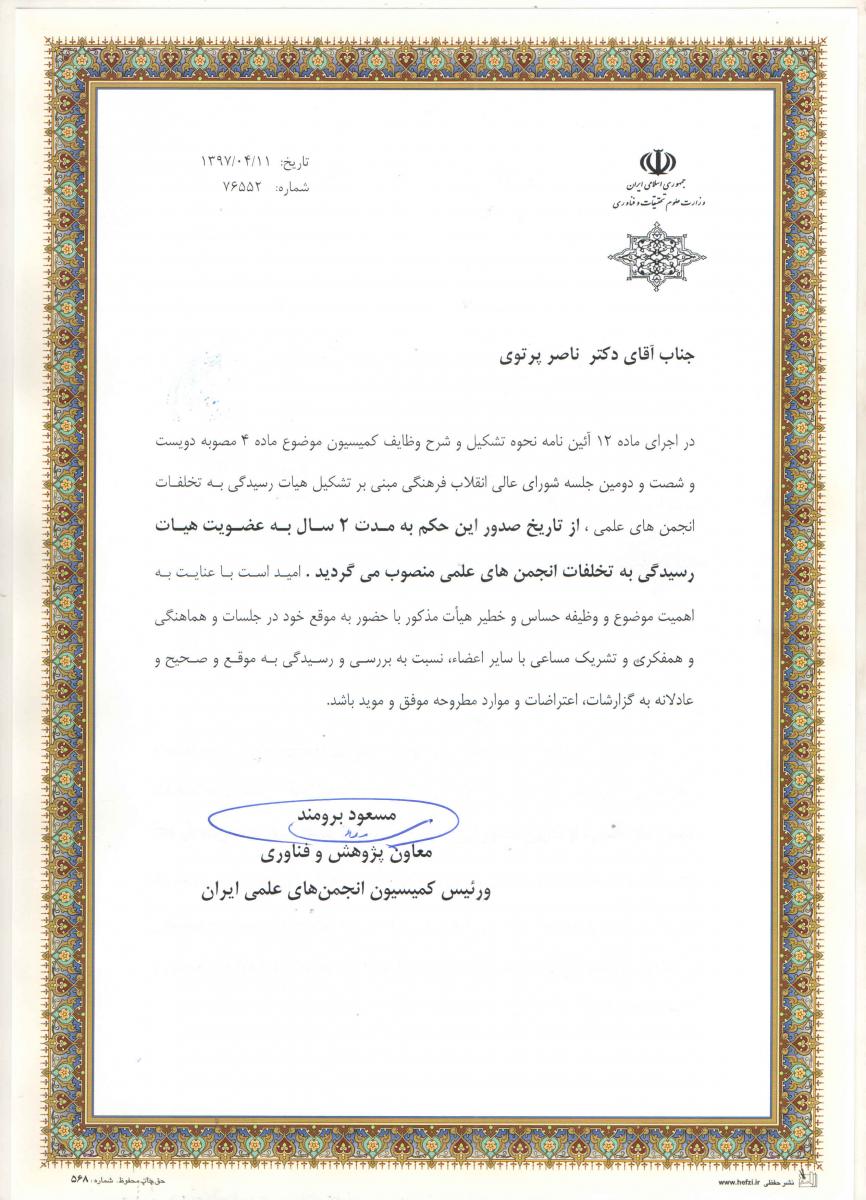 جمهوری اسلامی ایران
وزارت علوم تحقیقات و فناوری
تاریخ: ۱۳۹۷/۰۴/۱۱
شماره: ۷۶۵۵۲
جناب آقای دکتر ناصر پرتوی
در اجرای ماده ۱۲ آئین نامه نحوه تشکیل و شرح وظایف کمیسیون موضوع ماده ۴ مصوبه دویست
و شصت و دومین جلسه شورای عالی انقلاب فرهنگی مبنی بر تشکیل هیات رسیدگی به تخلفات
انجمن های علمی ، از تاریخ صدور این حکم به مدت ۲ سال به عضویت هیات
رسیدگی به تخلفات انجمن های علمی منصوب می گردید . امید است با عنایت به
اهمیت موضوع و وظیفه حساس و خطیر هیأت مذکور با حضور به موقع خود در جلسات و هماهنگی
و همفکری و تشریک مساعی با سایر اعضاء، نسبت به بررسی و رسیدگی به موقع و صحیح و
عادلانه به گزارشات، اعتراضات و موارد مطروحه موفق و موید باشد.
مسعود برومند
معاون پژوهش و فناوری
ورئیس کمیسیون انجمن‌های علمی ایران
نشر حفظی www.hefzi.ir
حق چاپ محفوظ. شماره: ۵۶۸